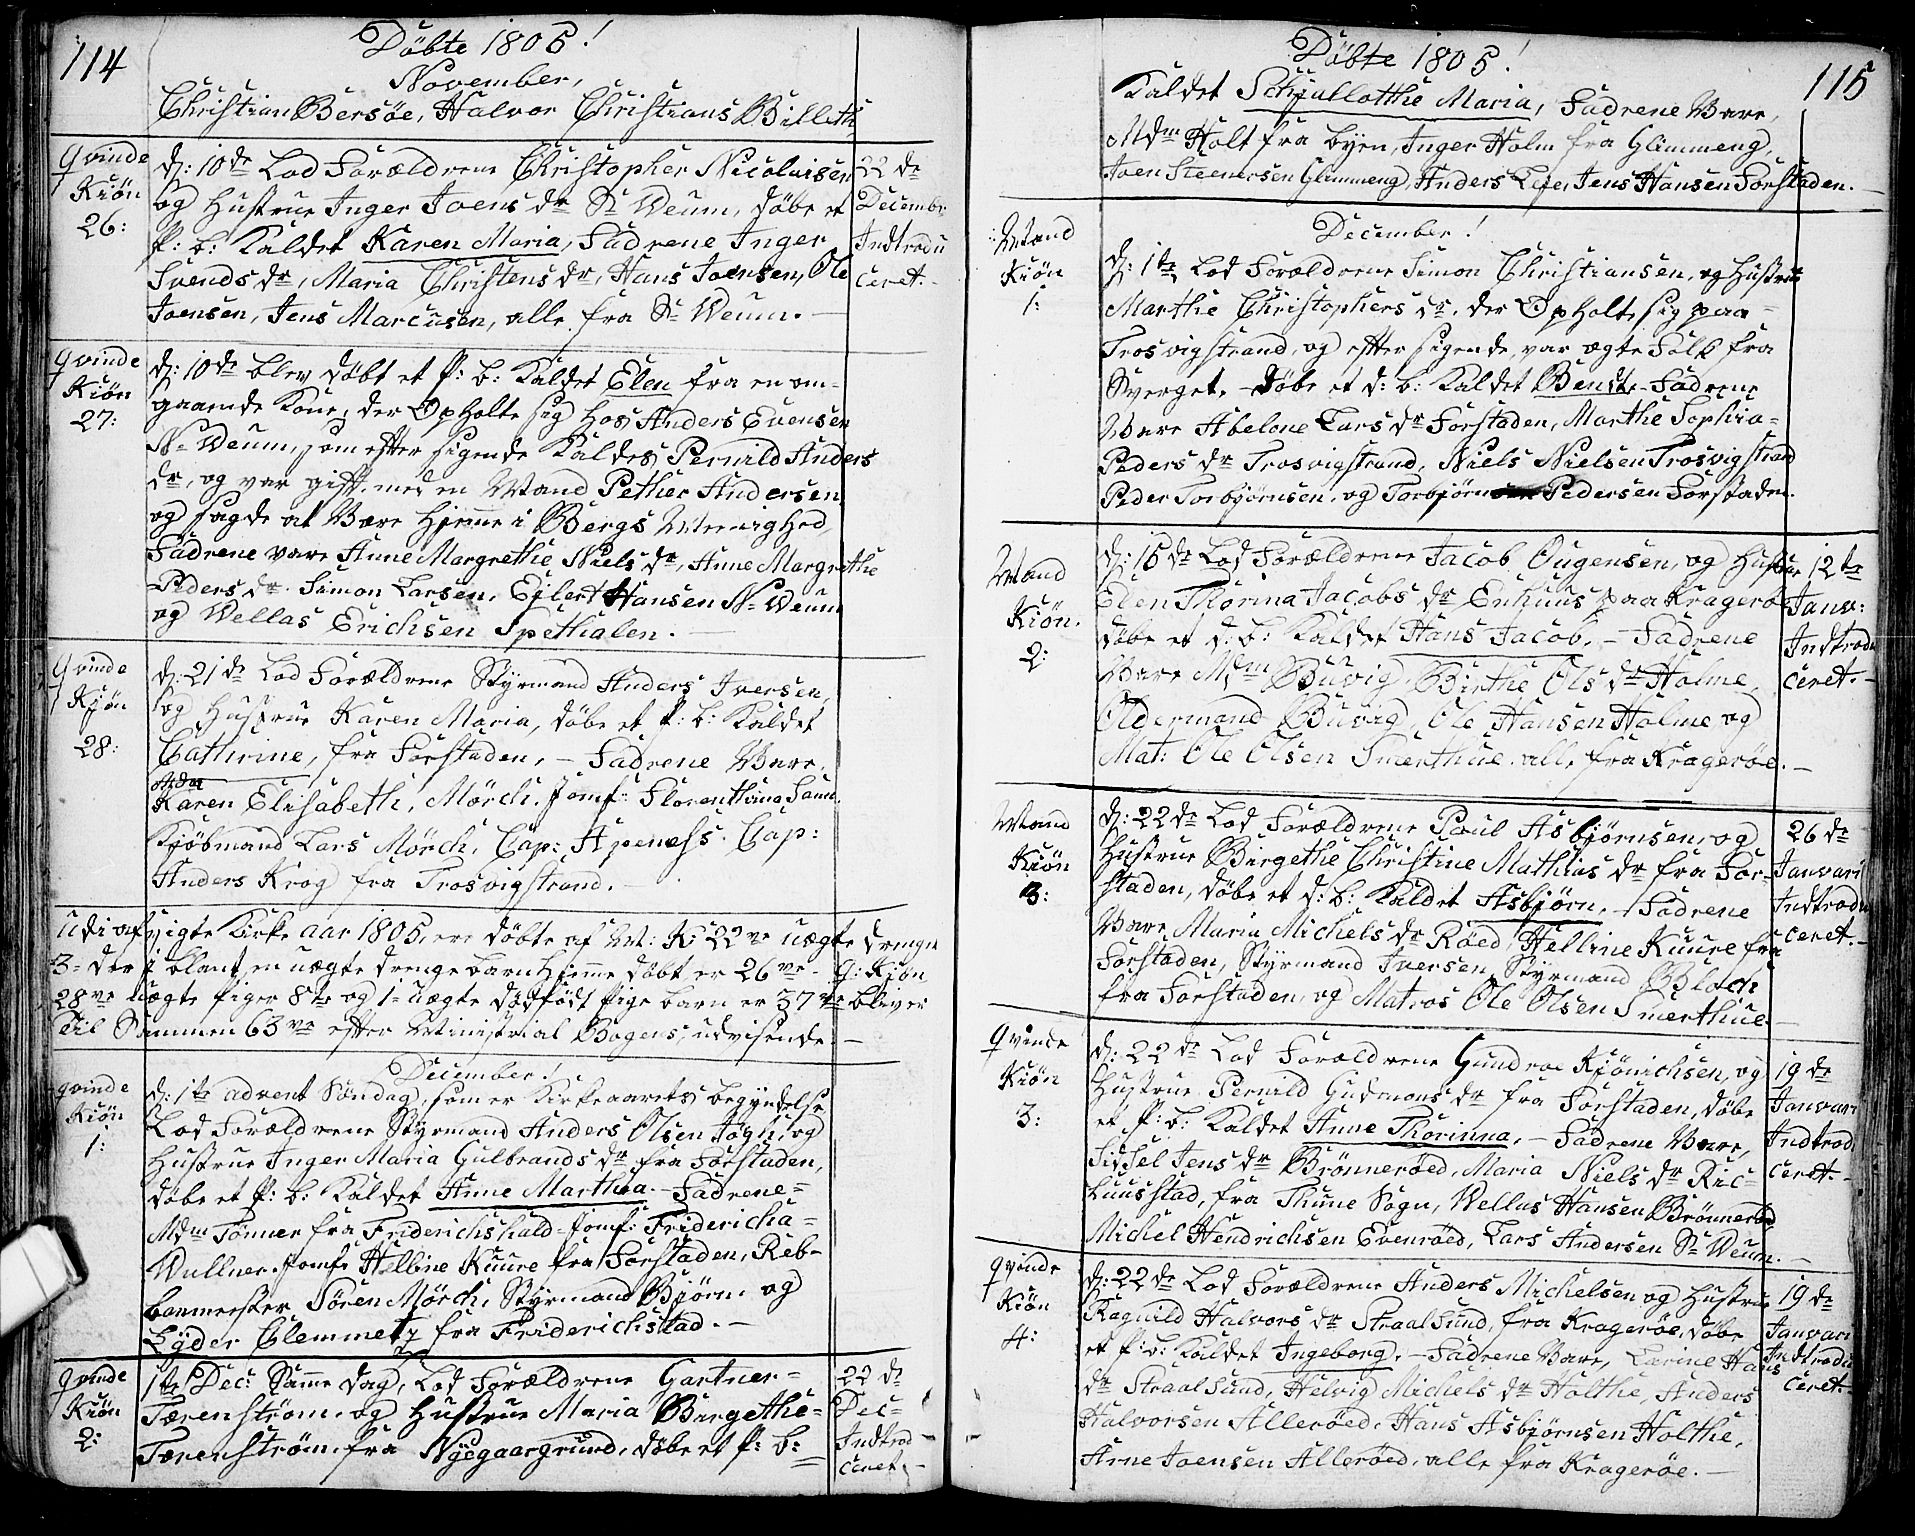 114
Döbte 1805!
November,
Christian Bersöe, Halvor Christians Billeth
qvinde
Kiön
26:
d: 10de Lod Forældrene Christopher Nicolaisen
og Hustrue Inger Joens dr Sr Weum, döbe et
p: b: Kaldet Karen Maria, Fadrene Inger
Svends dr, Maria Christens dr, Hans Joensen, Ole
Joensen, Jens Marcusen, alle fra Sr Weum. -
22 de
Decembr
Indtrodu
ceret. -
qvinde
Kiön
27:
d: 10de blev döbt et p: b: Kaldet Elen fra en om-
gaaende Kone, der Opholte sig hos Anders Evensen
Nr Weum, som efter sigende Kaldes Pernild Anders
dr, og var gift med en Mand Pether Andersen,
og sagde at Være Hjemme i Bergs Menighed,
Fadrene vare Anne Margrethe Niels dr, Anne Margrethe
Peders dr. Simon Larsen, Ejlert Hansen Nr Weum
og Wellas Erichsen Spethalen. -
qvinde
Kjön
28:
d: 21de Lod Forældrene Styrmand Anders Iversen,
og Hustrue Karen Maria, döbe et p: b: Kaldet
Cathrine, fra Forstaden, - Fadrene Vare,
Mdm
Karen Elisabeth, Mörch. Jomf: Florenthina Samm.
Kjöbmand Lars Mörch, Cap: Apeness. Cap:
Anders Krog fra Trosvigstrand. -
Udi afvigte Kirke aar 1805, ere döbte af M: K: 22ve uægte drenge
3= der i blant en uægte drenge barn Hjemme döbt er 26ve - Q: Kjön
28ve uægte piger 8te og 1= uægte dödfödt pige barn er 37te blever
til Summen 63ve efter Ministrial Bogens, udvisende. -
December!
qvinde
Kiön
1:
d: 1te advent Söndag, som er Kirkeaarets begyndelse,
Lod Forældrene Styrmand Anders Olsen Jögh, og
Hustrue Inger Maria Gulbrands dr fra Forstaden,
döbe et p: b: Kaldet Anne Marthea. - Fadrene =
Mdm Tönner fra Friderichshald - Jomf: Fridericha =
Wullner. Jomf: Helline Kuure fra Forstaden, Reb-
banmester Sören Mörch, Styrmand Björn. og
Eyder Clemmetz fra Friderichstad. -
qvinde
Kiön
2:
1te Dec: Samme dag, Lod Forældrene Gartner =
Tærenström. og Hustrue Maria Birgethe =
Tærenström. fra Nyegaargrund. döbe et p: b: =
22 de
Dec =
Indtrod
ceret. -
115
Döbte 1805!
Kaldet Schjullotthe Maria, Fadrene Vare,
Mdm Holt fra byen, Inger Holm fra Glimmeng,
Joen Steenersen Glimmeng, Anders Eje, Jens Hansen Forstaden. -
December!
Mand
Kiön
1:
d: 1te Lod Forældrene Simon Christiansen, og Hustrue
Marthe Christophers dr. der Opholte sig paa =
Trosvigstrand, og efter sigende, var ægte Folk fra
Sverget. - döbe et d: b: Kaldet Bendt - Fadrene
Vare Abelone Lars dr Forstaden, Marthe Sophia =
Peders dr Trosvigstrand, Niels Nielsen Trosvigstrand
Peder Torbjörnsen, og Torbjörn Pedersen Forstaden.
Mand
Kiön.
2:
d: 15de Lod Forældrene Jacob Ougensen, og Hustrue
Elen Thorina Jacobs dr Enhuus paa Krageröe
döbe et d: b: Kaldet Hans Jacob, - Fadrene
Vare Mdm Buvig, Birthe Ols dr Holme,
Oldermand Buvig, Ole Hansen Holme og
Mat: Ole Olsen Smerthue. alle fra Krageröe. -
12te
Janv:
Indtrodu
ceret. -
Mand
Kiön
3:
d: 22de Lod Forældrene Poul Asbjörnsen, og
Hustrue Birgethe Christine Mathias dr fra For-
staden, döbe et d: b: Kaldet Asbjörn, - Fadrene
Vare Maria Michels dr Röed, Helline Kuure fra
Forstaden, Styrmand Iversen, Styrmand Bloch
fra Forstaden, og Matros Ole Olsen Smerthue. -
26 de
Janvari
Indtrodu
ceret. -
qvinde
Kiön
3:
d: 22de Lod Forældrene Gundroe Kjönichsen, og
Hustrue Pernild Gudmons dr fra Forstaden, döbe
et p: b: Kaldet Anne Thorinna, - Fadrene Vare,
Sidsel Jens dr Brönneröed, Maria Niels dr Ric-
Luusstad, fra Thune Sogn, Wellas Hansen Brönneröed
Michel Hendrichsen Evenröed, Lars Andersen Sr Weum. -
19 de
Janvari
Indtrod
ceret. -
qvinde
Kiön
4:
d: 22de Lod Forældrene Anders Michelsen og Hustrue
Ragnild Halvors dr Straalsund, fra Krageröe, döbe
et p: b: Kaldet Ingeborg. - Fadrene Vare, Larine Hans
dr Straalsund, Helvig Michels dr Holthe, Anders
Halvorsen Alleröed, Hans Asbjörnsen Holthe,
Arne Joensen Alleröed, alle fra Krageröe. -
19 de
Janvari
Indtrodu
ceret. -